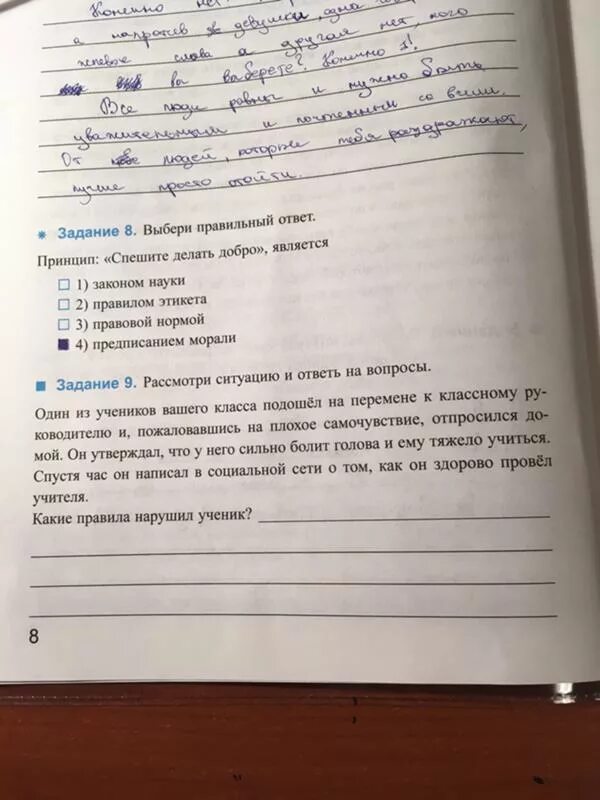 Конечно нет
а напротив девушки, одна
слова а другая нет, кого
вы выберете? Конечно 1!
Все люди равны и нужно быть
уважительным и почтенным со всеми.
От людей, которые тебя раздражают,
лучше просто отойти.
* Задание 8. Выбери правильный ответ.
Принцип: «Спешите делать добро», является
1) законом науки
2) правилом этикета
3) правовой нормой
4) предписанием морали
Задание 9. Рассмотри ситуацию и ответь на вопросы.
Один из учеников вашего класса подошёл на перемене к классному ру-
ководителю и, пожаловавшись на плохое самочувствие, отпросился до-
мой. Он утверждал, что у него сильно болит голова и ему тяжело учиться.
Спустя час он написал в социальной сети о том, как он здорово провёл
учителя.
Какие правила нарушил ученик?
8